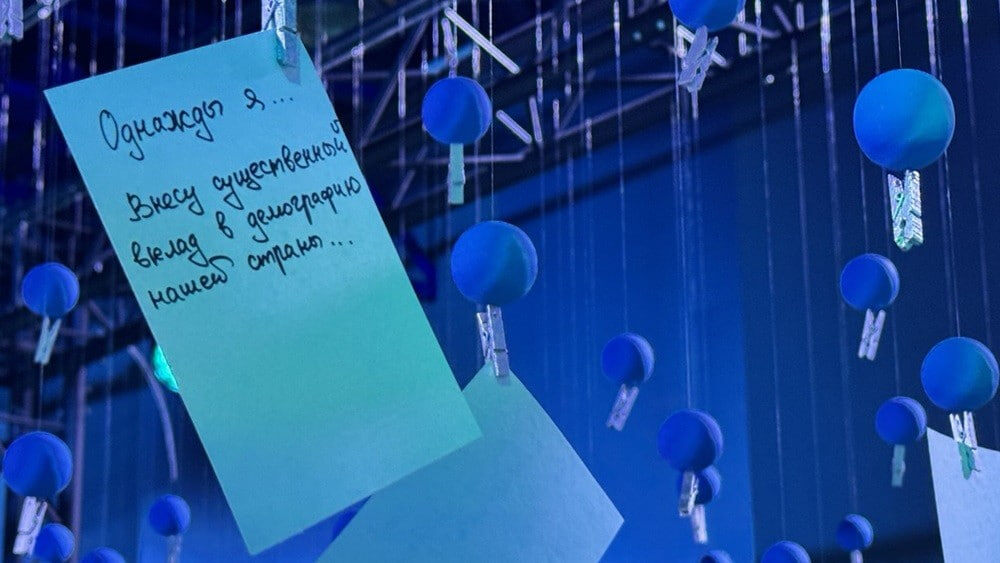 Однажды я...
Внесу существенной
вклад в демографию
нашей страны...